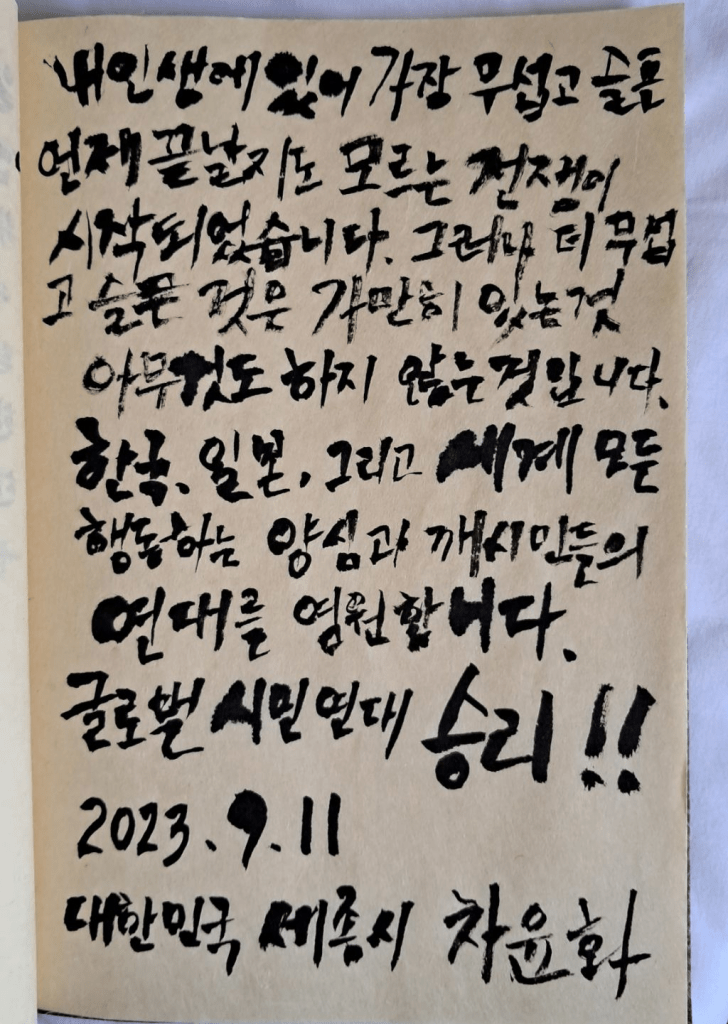 내 인생에 있어 가장 무섭고 슬픈
언제 끝날지도 모르는 전쟁이
시작되었습니다. 그러나 더 무섭
고 슬픈 것은 가만히 있는것
아무것도 하지 않는것입니다.
한국, 일본, 그리고 세계 모든
행동하는 양심과 깨시민들의
연대를 염원합니다.
글로벌 시민연대 승리!!
2023.9.11
대한민국 세종시 차윤화